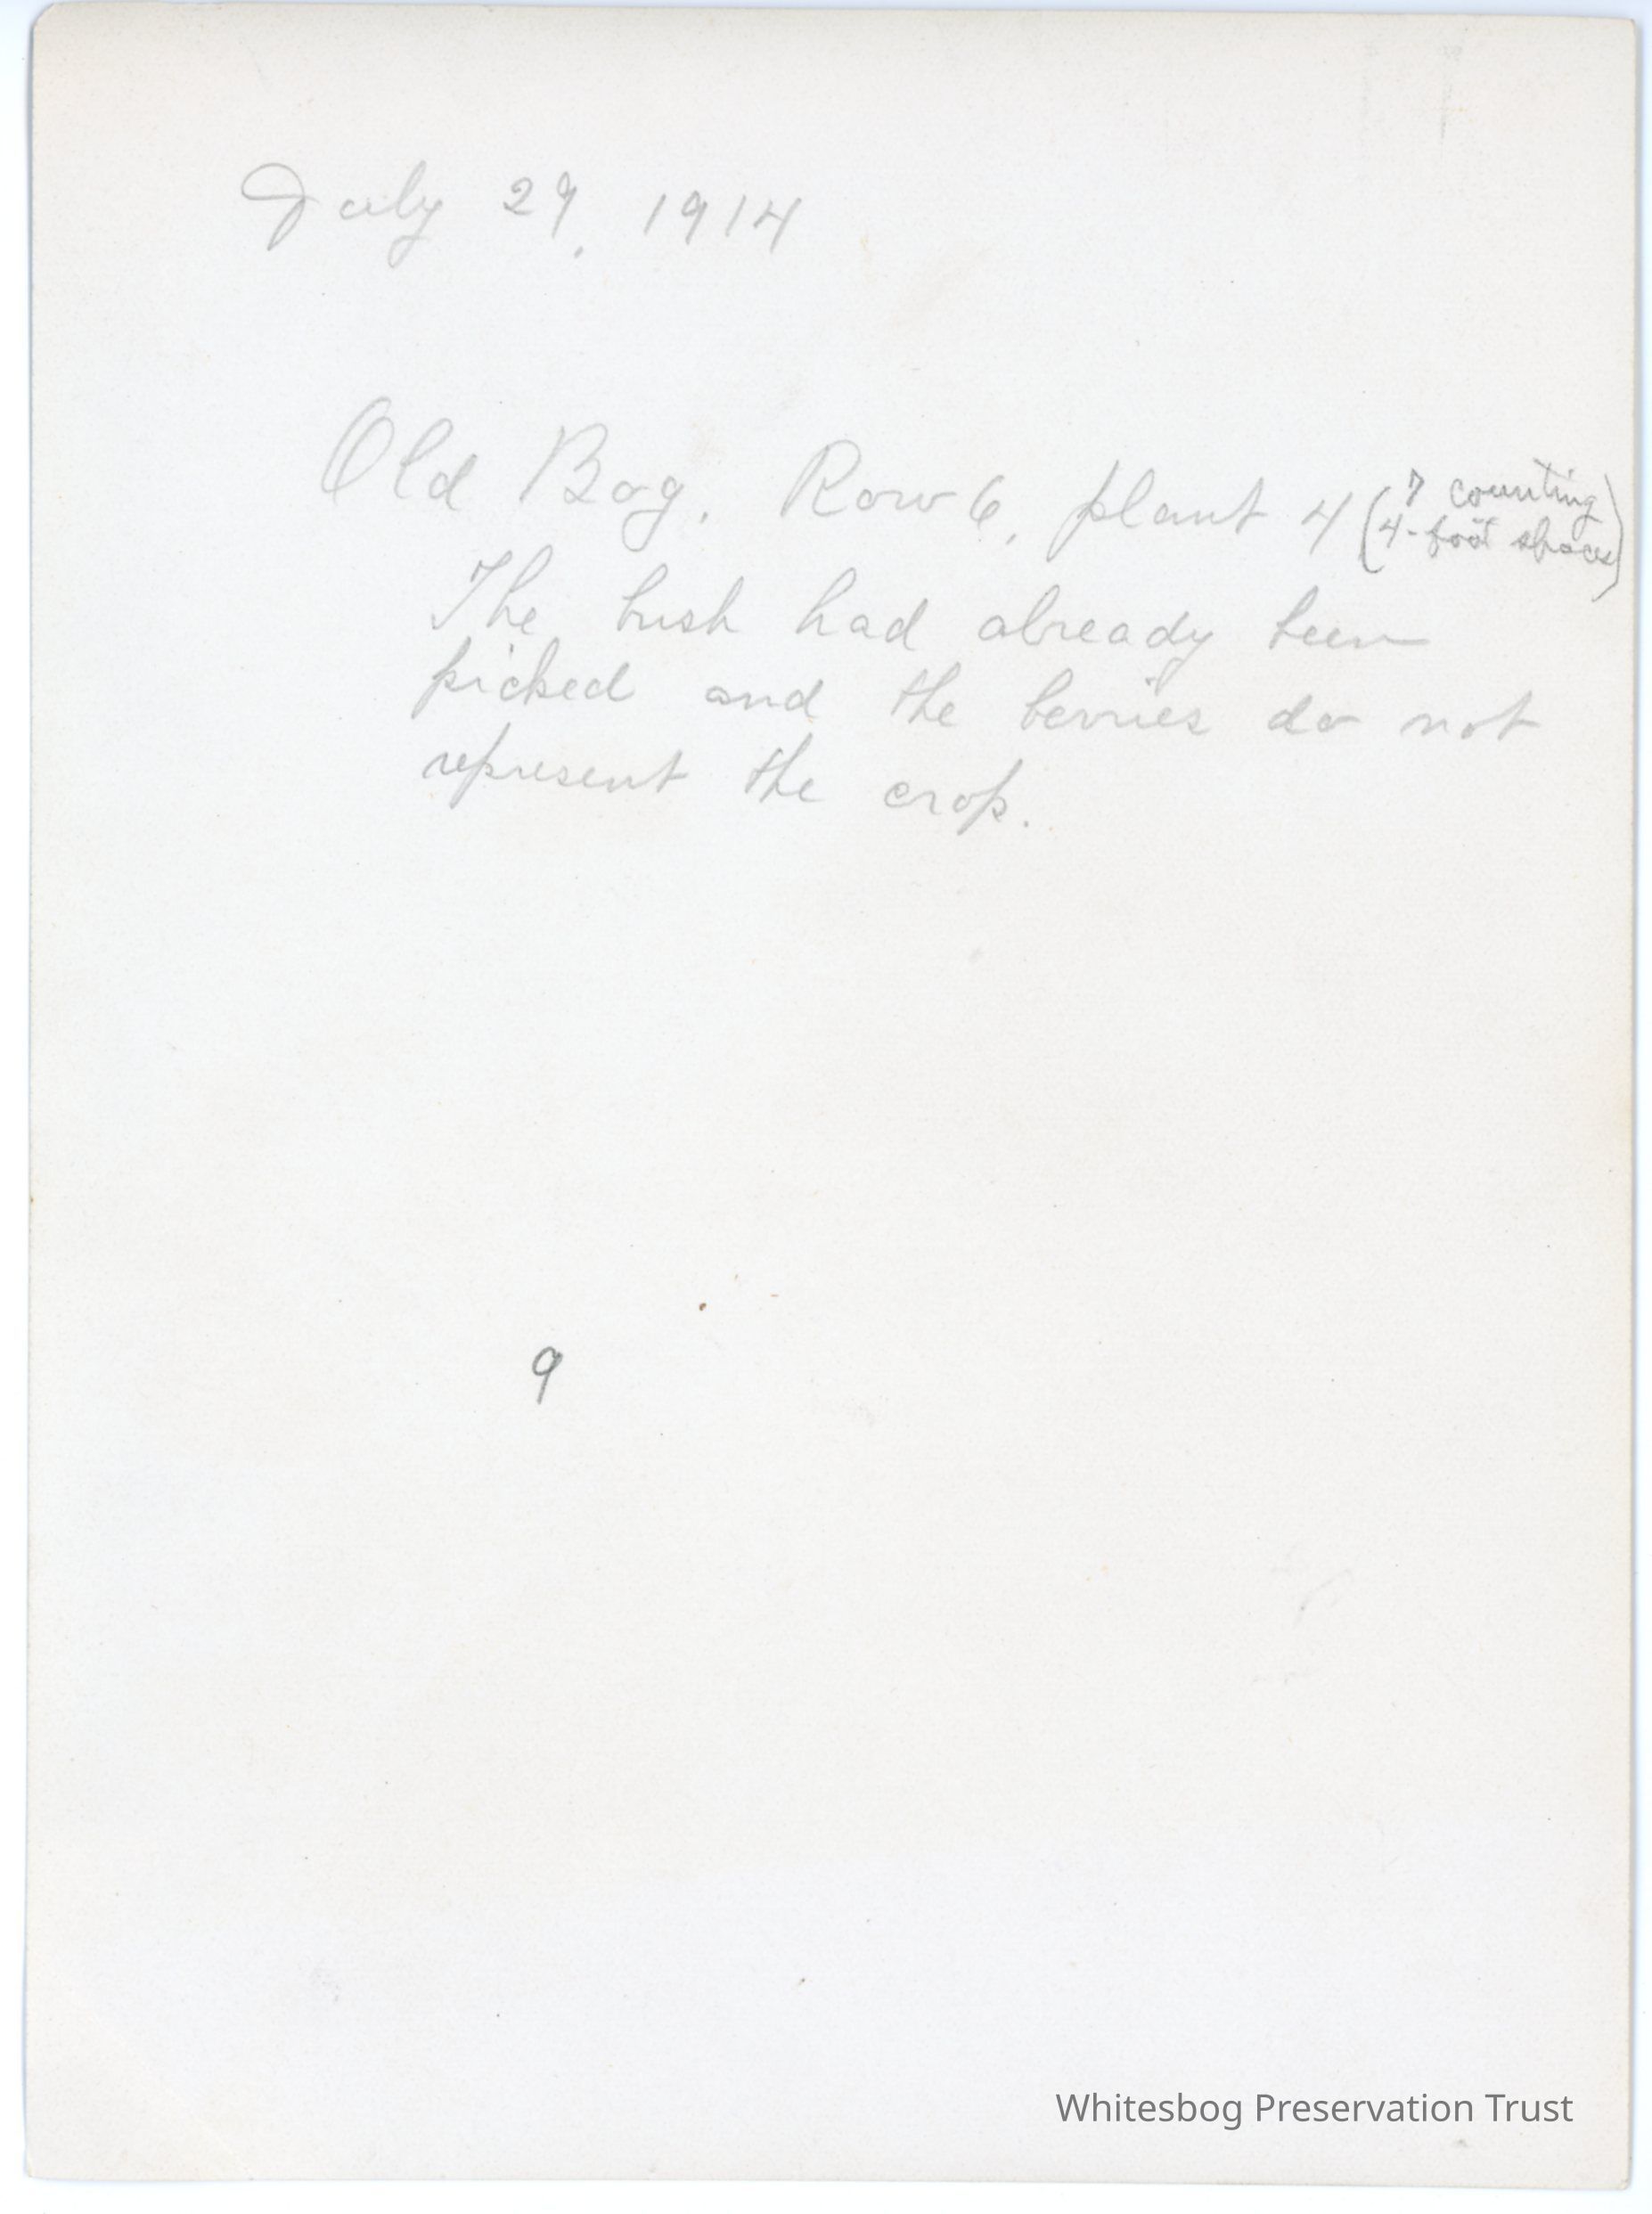 July 29, 1914
Old Bog, Row 6, plant 4 (7 counting
4-foot spaces)
The bush had already been
picked and the berries do not
represent the crop.
9
Whitesbog Preservation Trust